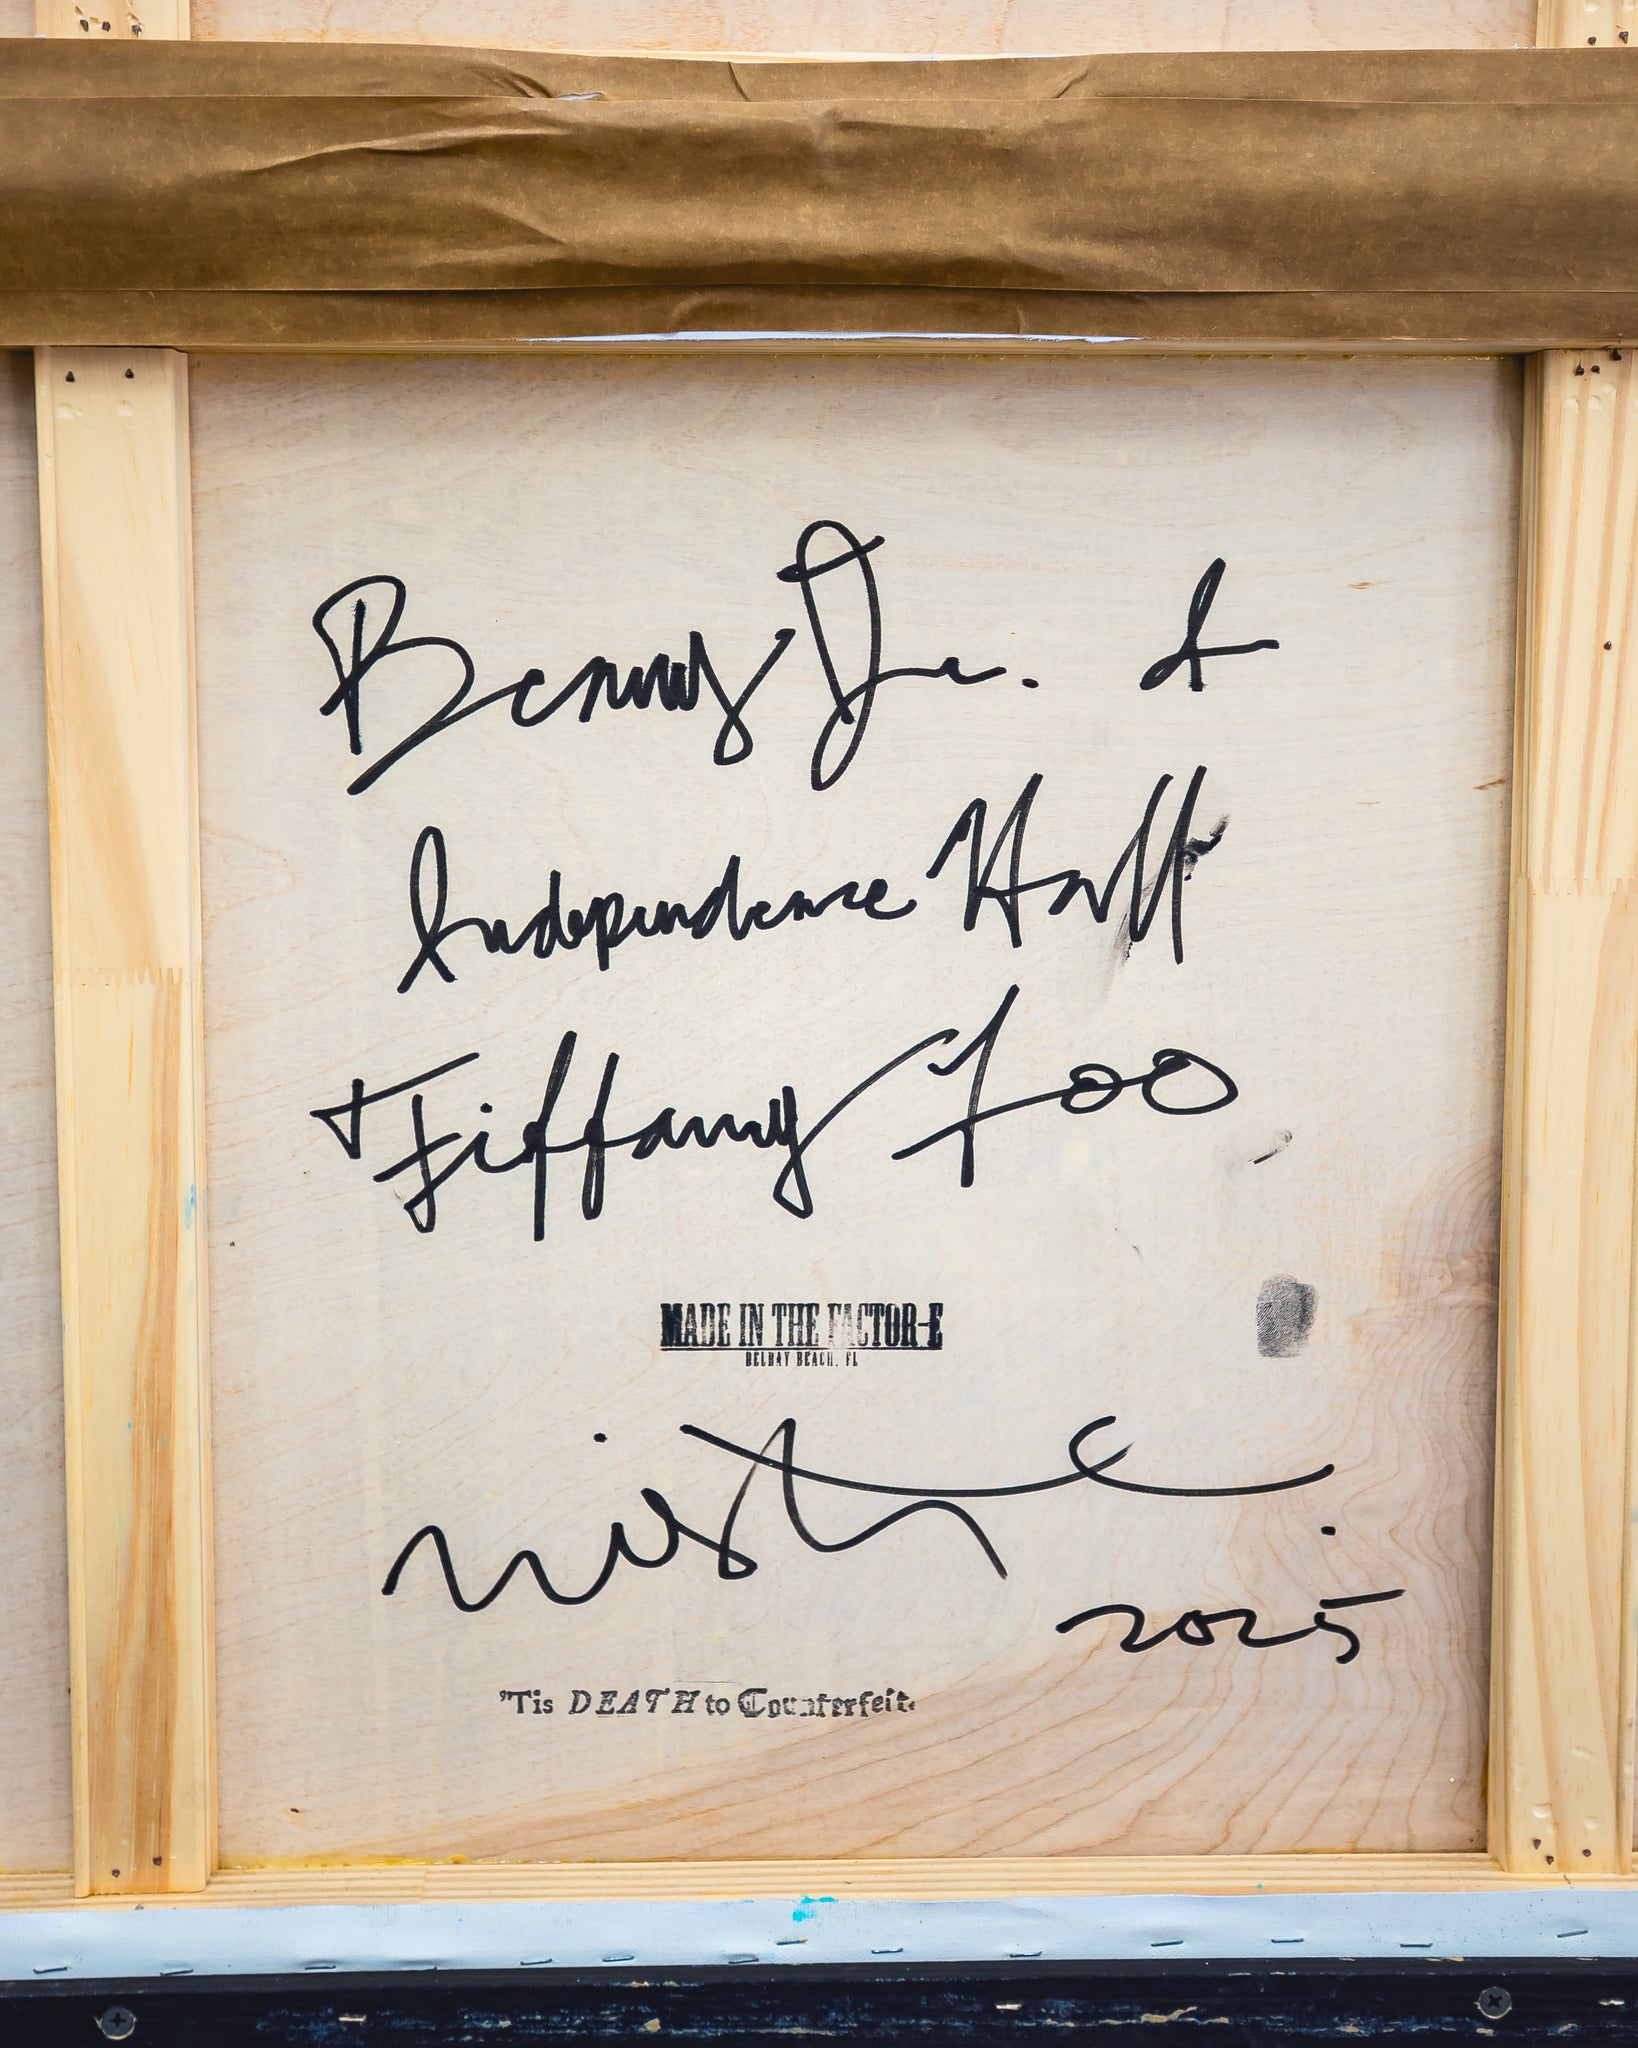 Benny Jr. &
Independence Hall
Tiffany Foo
MADE IN THE FACTOR-E
DELRAY BEACH, FL
2025
'Tis DEATH to Counterfeit.